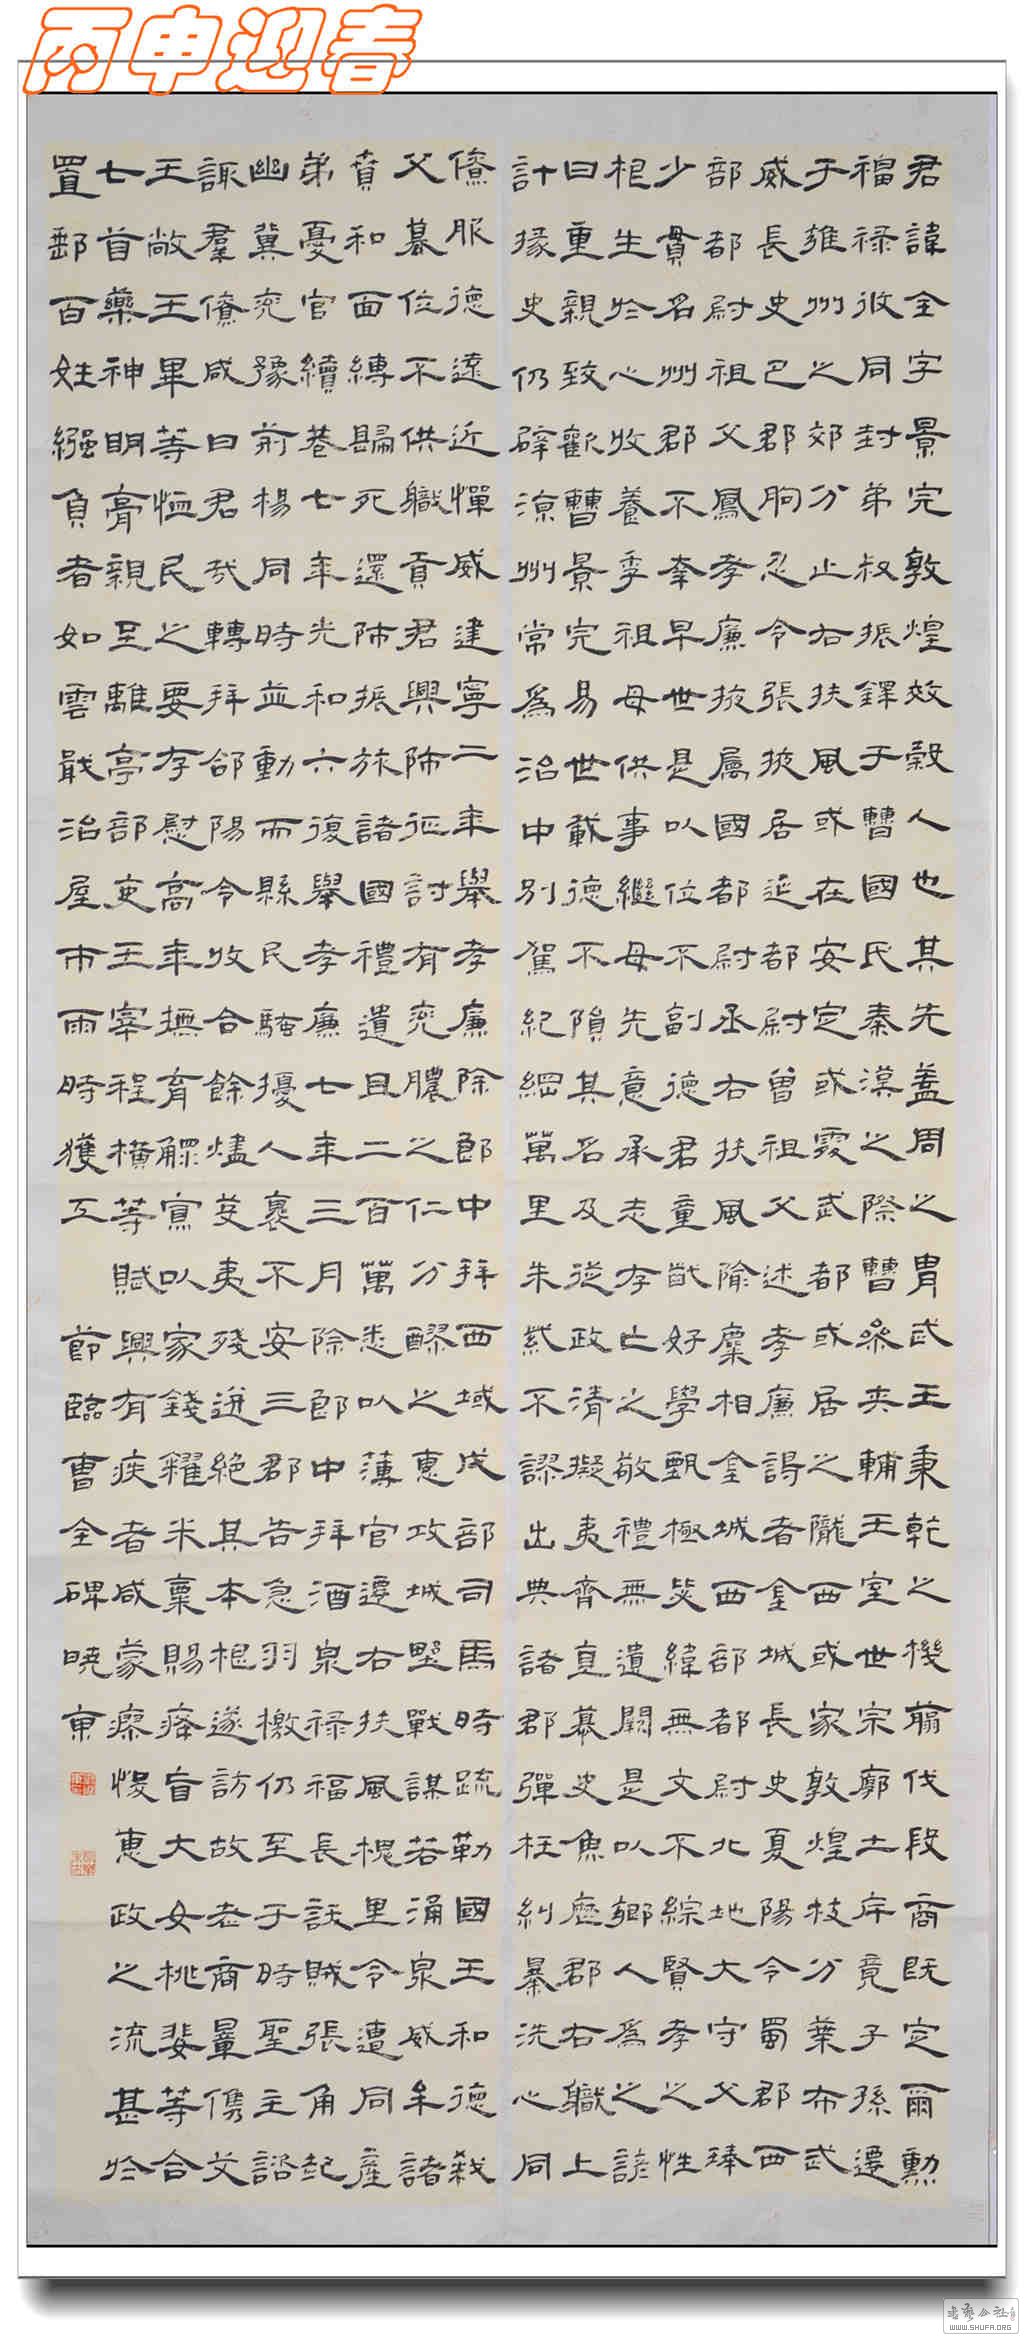 丙申迎春
君諱全字景完敦煌效穀人也其先蓋周之冑武王秉乾之機翦伐殷商既定爾勳
福祿攸同封弟叔振鐸于曹國氏秦漢之際曹參夾輔王室世宗廓土斥竟子孫遷
于雍州之郊分止右扶風或在安定或處武都或居之隴西或家敦煌枝分葉布武
威長史巴郡朐忍令張掖居延都尉曾祖父述孝廉謁者金城長史夏陽令蜀郡西
部都尉祖父鳳孝廉掖屬國都尉丞右扶風隃麋相金城西部都尉北地大守父琫
少貫名州郡不幸早世是以位不副德君童齔好學甄極毖緯無文不綜賢孝之性
根生於心收養季祖母供事繼母先意承志存亡之敬禮無遺闕是以鄉人為之諺
曰重親致歡曹景完易世載德不隕其名及從政清擬夷齊直慕史魚歷郡右職上
計掾史仍辟涼州常為治中別駕紀綱萬里朱紫不謬出典諸郡彈枉糾暴洗心同
僚服德遠近憚威建寧二年舉孝廉除郎中拜西域戊部司馬時疏勒國王和德弒
父篡位不供職貢君興師征討有兗膿之仁分醪之惠攻城野戰謀若涌泉威牟諸
賁和面縛歸死還師振旅諸國禮遺且二百萬悉以薄官遷右扶風槐里令遭同產
弟憂官續巷七年光和六復舉孝廉七年三月除郎中拜酒泉祿福長訞賊張角起
幽冀兗豫荊楊同時並動而縣民騷擾人裹不安三郡告急羽檄仍至于時聖主諮
諏羣僚咸曰君哉轉拜郃陽令收合餘燼芟夷殘迸絕其本根遂訪故老商量儁艾
王敞王畢等恤民之要存慰高年撫育鰥寡以家錢糴米粟賜癃盲大女桃婓等合
七首藥神明膏親至離亭部吏王宰程橫等賦興有疾者咸蒙瘳悛惠政之流甚於
置郵百姓繦負者如雲戢治屋市雨時獲互 節臨曹全碑曉東
WWW.SHUFA.ORG